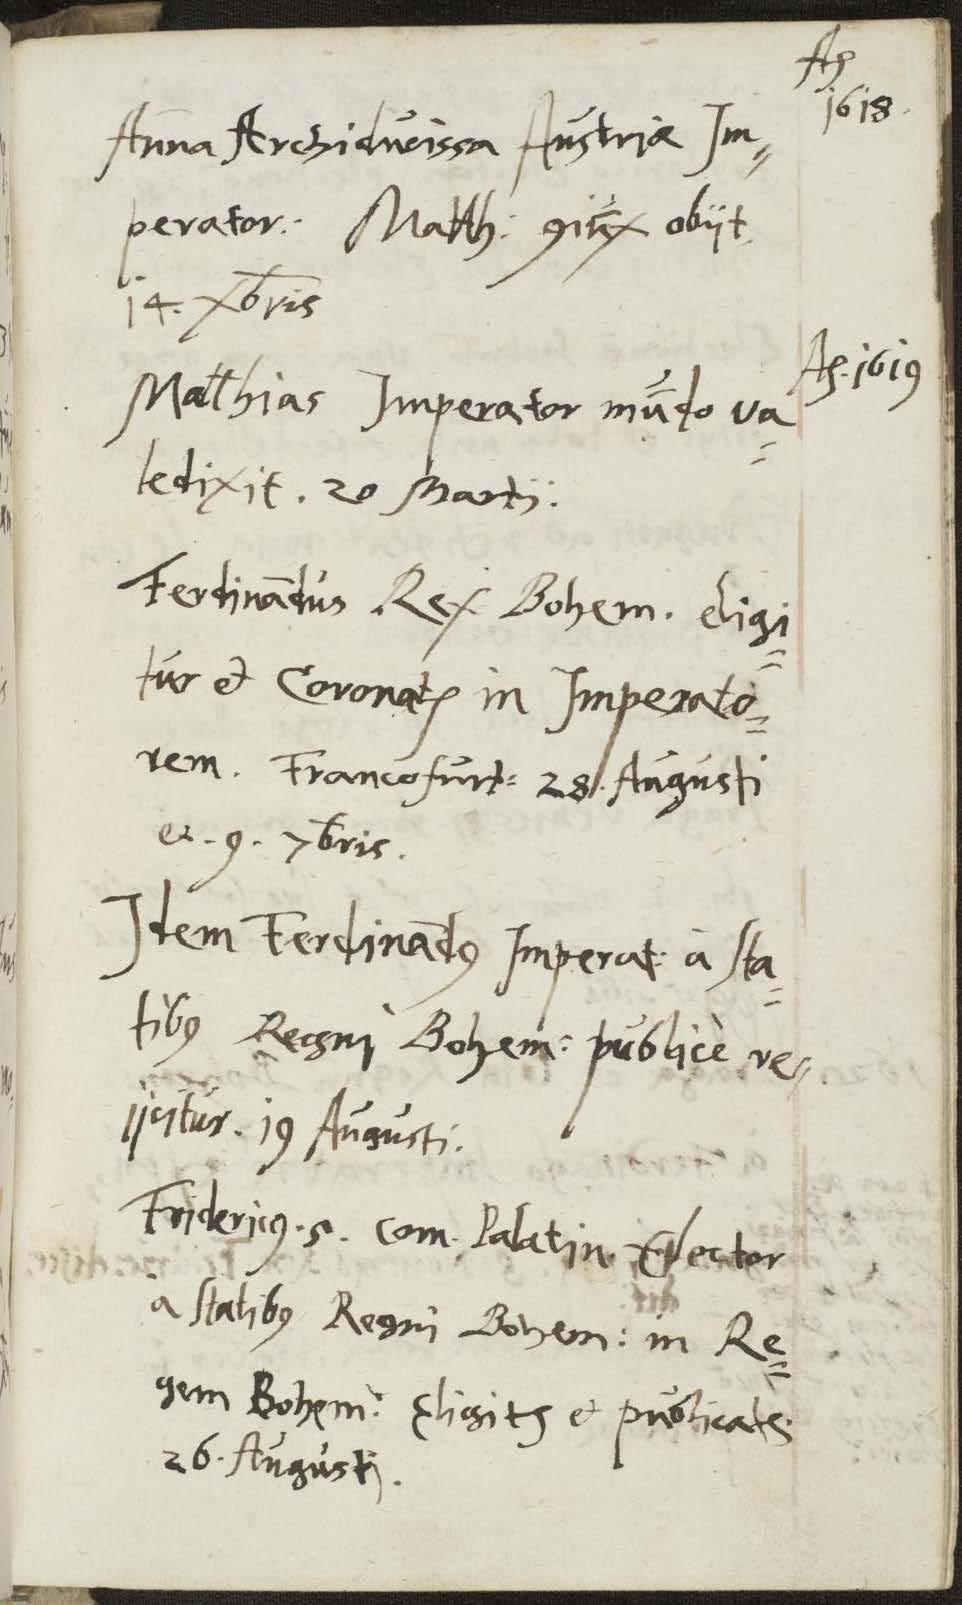 Aõ
1618.
Anna Archiducissa Austriæ Im„
perator: Matth: obijt
14. Xbris
Aõ. 1619
Matthias Imperator mūdo va=
ledixit. 20 Martij.
Ferdinādus Rex Bohem. eligi=
tur et Coronatꝰ in Imperato=
rem. Francofurt: 28. Augusti
et. 9. 7bris.
Idem Ferdinādꝰ Imperat: à sta=
tibꝰ Regni Bohem: publicè re„
ijcitur. 19 Augusti.
Fridericꝰ. 5. Com. Palatin. Elector
à statibꝰ Regni Bohem: in Re=
gem Bohem: eligitꝰ et publicatꝰ.
26. Augusti.